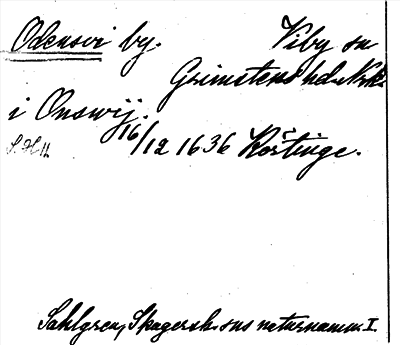 Odensvi by. Viby sn
Grimstens hd. Nrk.
i Onswij.
16/12 1636 Röstinge.
S. H 11
Sahlgren, Skagersh. sns naturnamn I